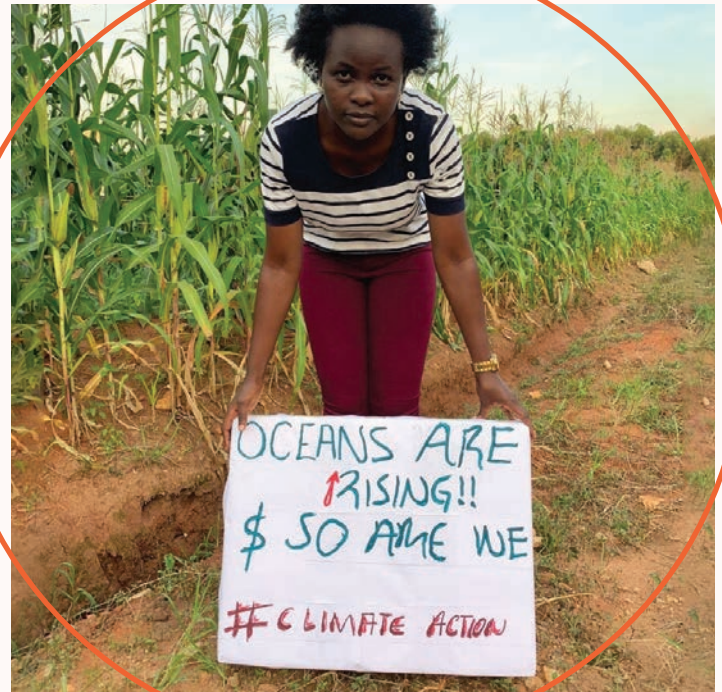 OCEANS ARE
RISING!!
$ SO ARE WE
# CLIMATE ACTION